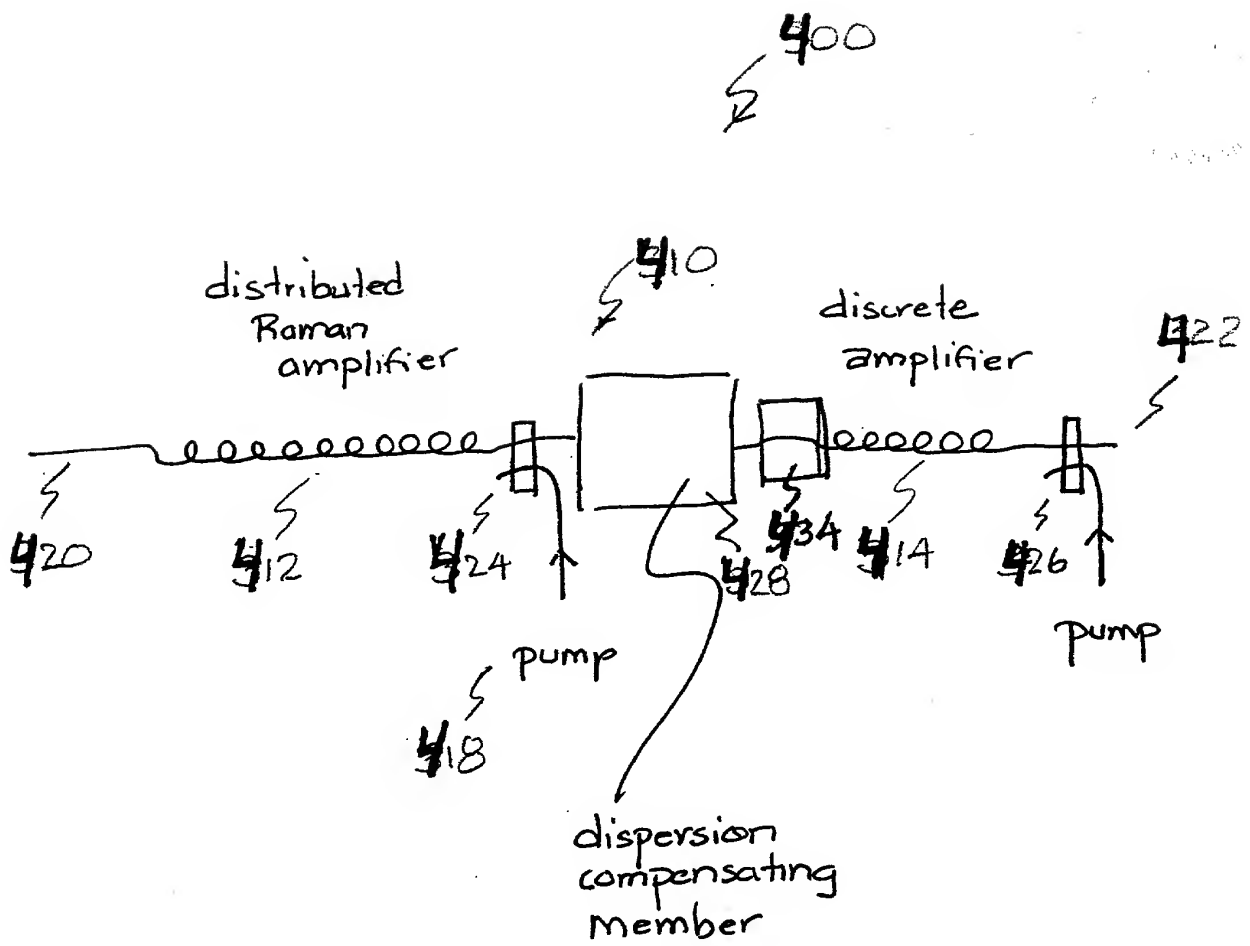 400
410
distributed
Raman
amplifier
discrete
amplifier
422
420
412
424
428
434
414
426
pump
pump
418
dispersion
compensating
member